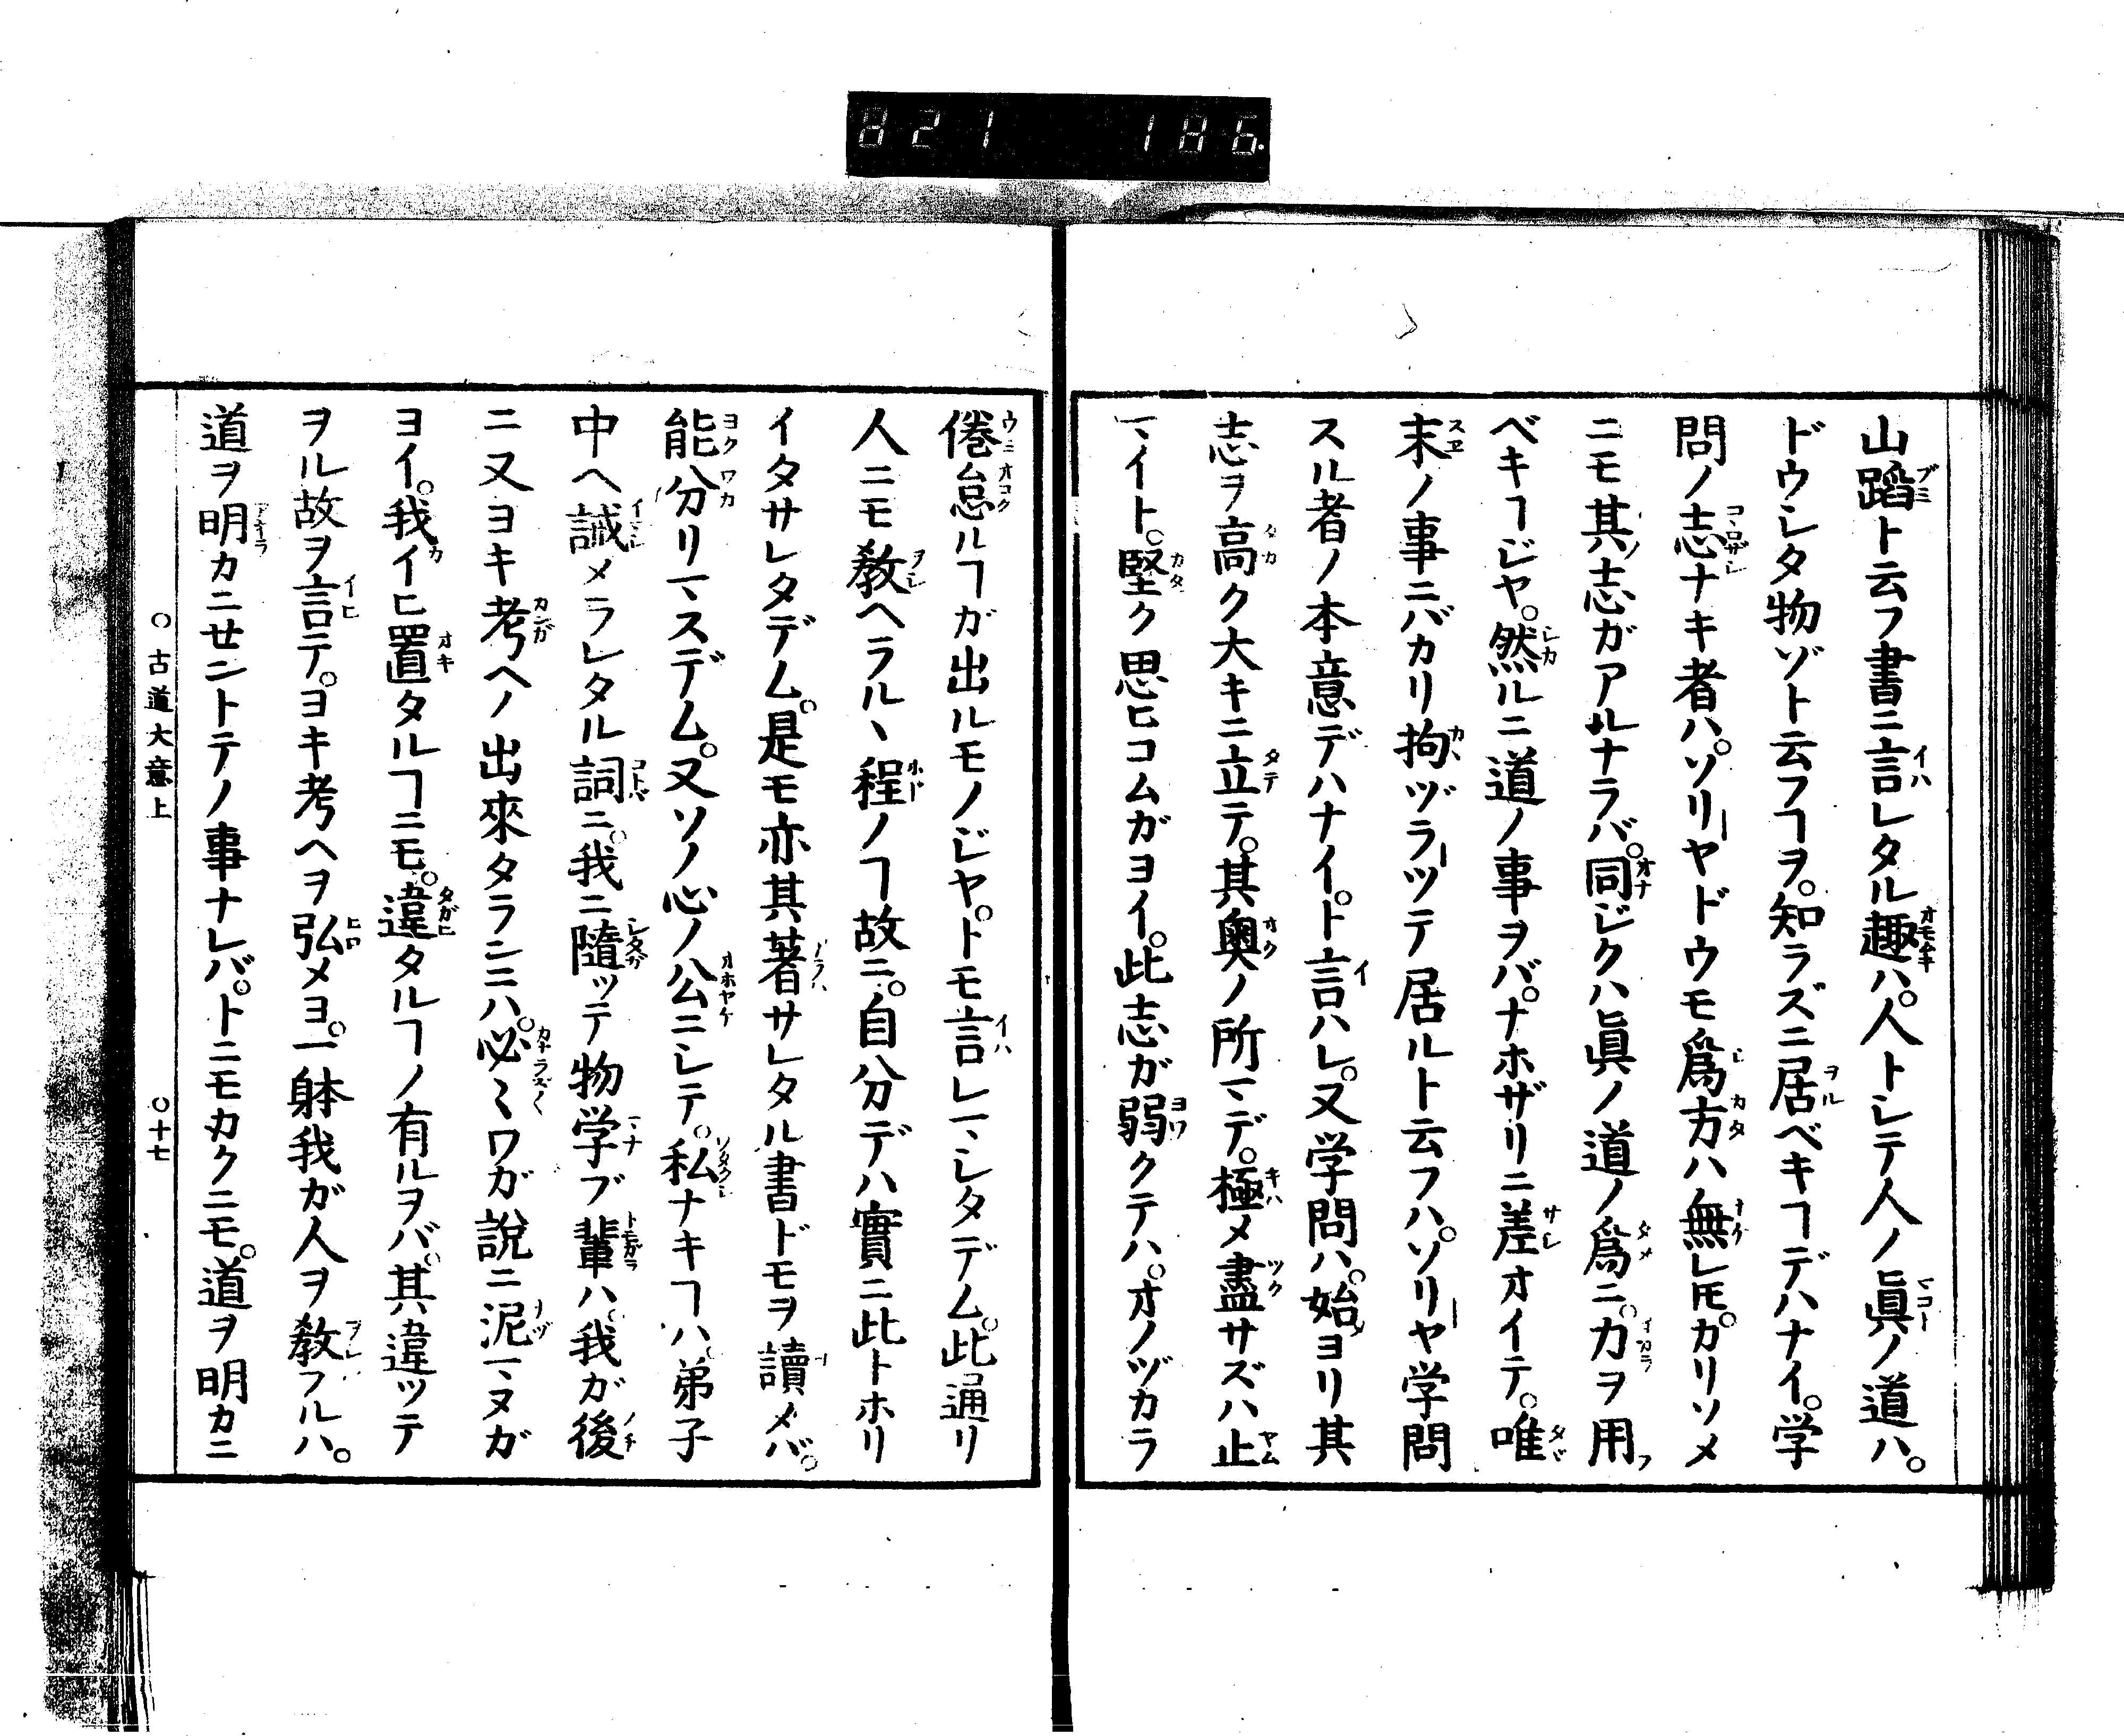 821 186.
山蹈ト云フ書ニ言レタル趣ハ。人トシテ人ノ眞ノ道ハ。
ドウシタ物ゾト云フヿヲ。知ラズニ居ベキヿデハナイ。学
問ノ志ナキ者ハ。ソリーヤドウモ爲方ハ無レ𪜈。カリソメ
ニモ其志ガアルナラバ。同ジクハ眞ノ道ノ爲ニ。力ヲ用
ベキヿジヤ。然ルニ道ノ事ヲバ。ナホザリニ差オイテ。唯
末ノ事ニバカリ拘ヅラーツテ居ルト云フハ。ソリーヤ学問
スル者ノ本意デハナイ。ト言ハレ。又学問ハ。始ヨリ其
志ヲ高ク大キニ立テ。其奥ノ所マデ。極メ盡サズハ止
マイト。堅ク思ヒコムガヨイ。此志ガ弱クテハ。オノヅカラ
倦怠ルヿガ出ルモノジヤ。トモ言レマシタデム。此通リ
人ニモ敎ヘラルヽ程ノヿ故ニ。自分デハ實ニ此トホリ
イタサレタデム。是モ亦其著サレタル書ドモヲ讀メバ。
能分リマスデム。又ソノ心ノ公ニシテ。私ナキヿハ。弟子
中ヘ誡メラレタル詞ニ。我ニ隨ツテ物学ブ輩ハ。我ガ後
ニ又ヨキ考ヘノ出來タランニハ。必〻ワガ說ニ泥マヌガ
ヨイ。我イヒ置タルヿニモ。違タルヿノ有ルヲバ。其違ツテ
ヲル故ヲ言テ。ヨキ考ヘヲ弘メヨ。一躰我ガ人ヲ敎フルハ。
道ヲ明カニセントテノ事ナレバ。トニモカクニモ。道ヲ明カニ
○古道大意上 ○十七